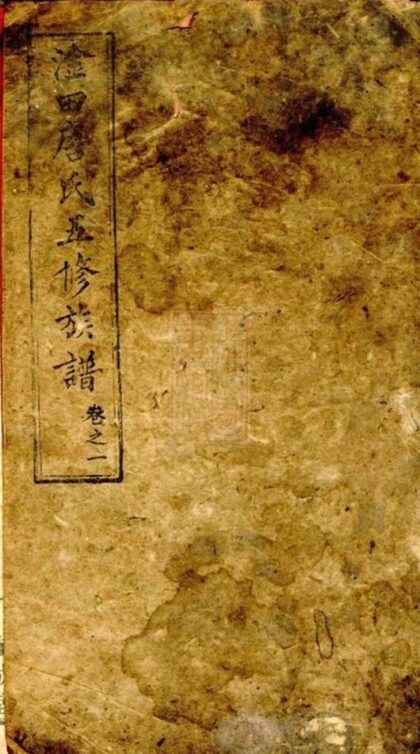 澄田唐氏五修族譜
卷之一